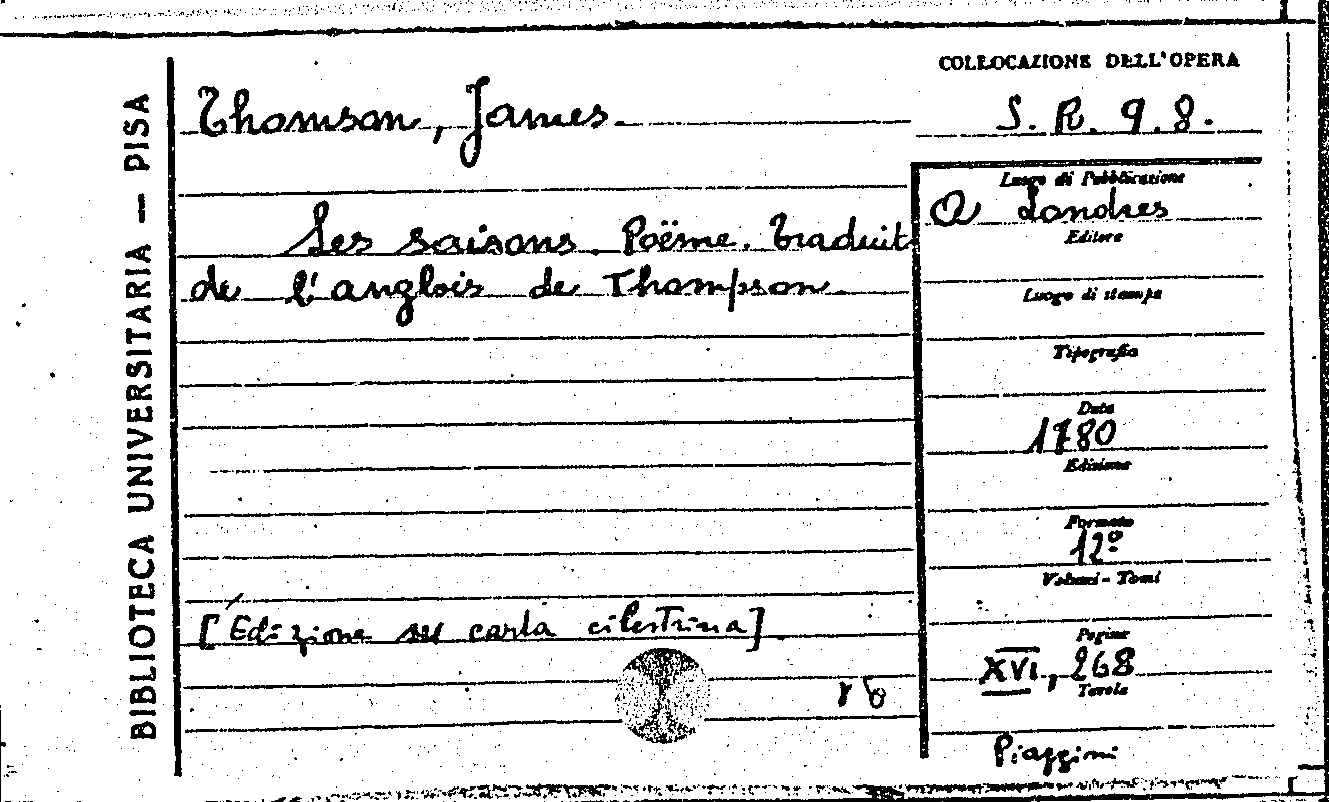 BIBLIOTECA UNIVERSITARIA — PISA
COLLOCAZIONE DELL'OPERA
S. R. 9. 8.
Thomson, James.
Les saisons. Poëme. Traduit
de l'anglois de Thompson.
[Edizione su carta cilestrina]
Luogo di Pubblicazione
A Londres
Editore
Luogo di stampa
Tipografia
Data
1780
Edizione
Formato
12º
Volumi - Tomi
Pagine
XVI, 268
Tavole
Piaggini